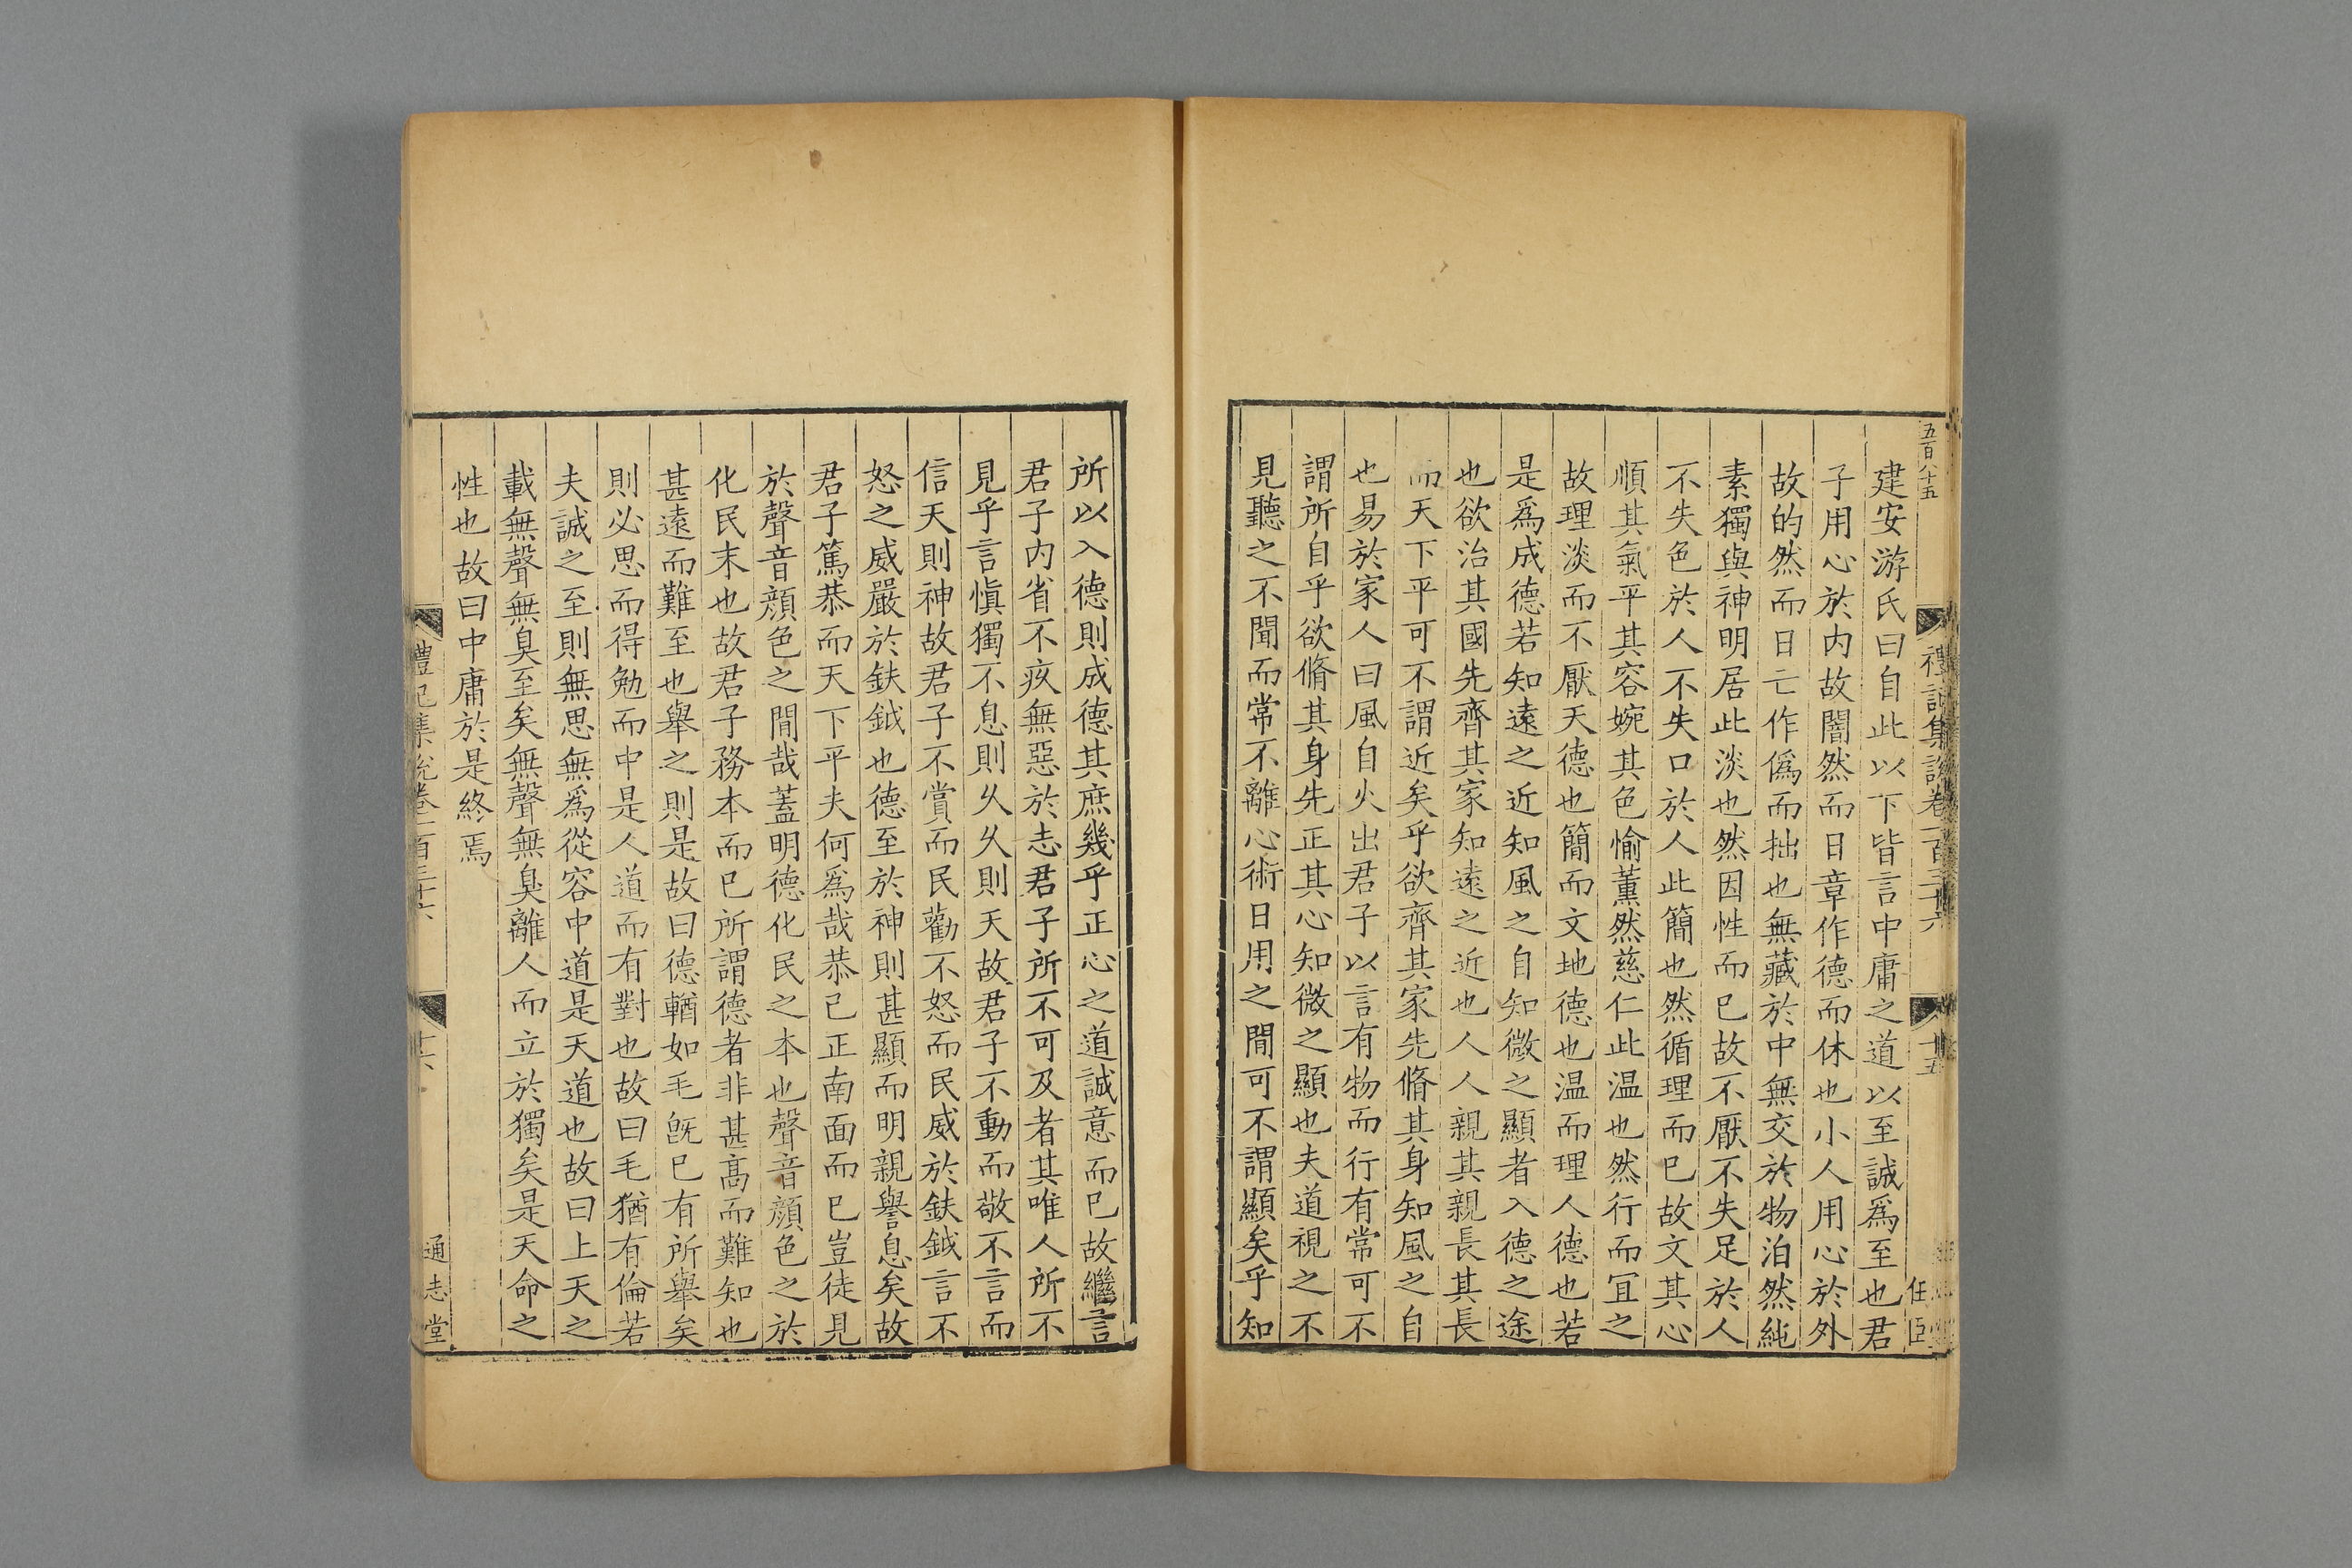 五百八十五
禮記集說卷一百三十六
十五
任臣
建安游氏曰自此以下皆言中庸之道以至誠爲至也君
子用心於内故闇然而日章作德而休也小人用心於外
故的然而日亡作僞而拙也無藏於中無交於物泊然純
素獨與神明居此淡也然因性而已故不厭不失足於人
不失色於人不失口於人此簡也然循理而已故文其心
順其氣平其容婉其色愉薰然慈仁此温也然行而宜之
故理淡而不厭天德也簡而文地德也温而理人德也若
是爲成德若知遠之近知風之自知微之顯者入德之途
也欲治其國先齊其家知遠之近也人人親其親長其長
而天下平可不謂近矣乎欲齊其家先脩其身知風之自
也易於家人曰風自火出君子以言有物而行有常可不
謂所自乎欲脩其身先正其心知微之顯也夫道視之不
見聽之不聞而常不離心術日用之間可不謂顯矣乎知
所以入德則成德其庶幾乎正心之道誠意而已故繼言
君子内省不疚無惡於志君子所不可及者其唯人所不
見乎言愼獨不息則乆乆則天故君子不動而敬不言而
信天則神故君子不賞而民勸不怒而民威於鈇鉞言不
怒之威嚴於鈇鉞也德至於神則甚顯而明親譽息矣故
君子篤恭而天下平夫何爲哉恭己正南面而已豈徒見
於聲音顔色之間哉蓋明德化民之本也聲音顔色之於
化民末也故君子務本而已所謂德者非甚高而難知也
甚遠而難至也舉之則是故曰德輶如毛旣已有所舉矣
則必思而得勉而中是人道而有對也故曰毛猶有倫若
夫誠之至則無思無爲從容中道是天道也故曰上天之
載無聲無臭至矣無聲無臭離人而立於獨矣是天命之
性也故曰中庸於是終焉
禮記集說卷一百三十六
十六
通志堂